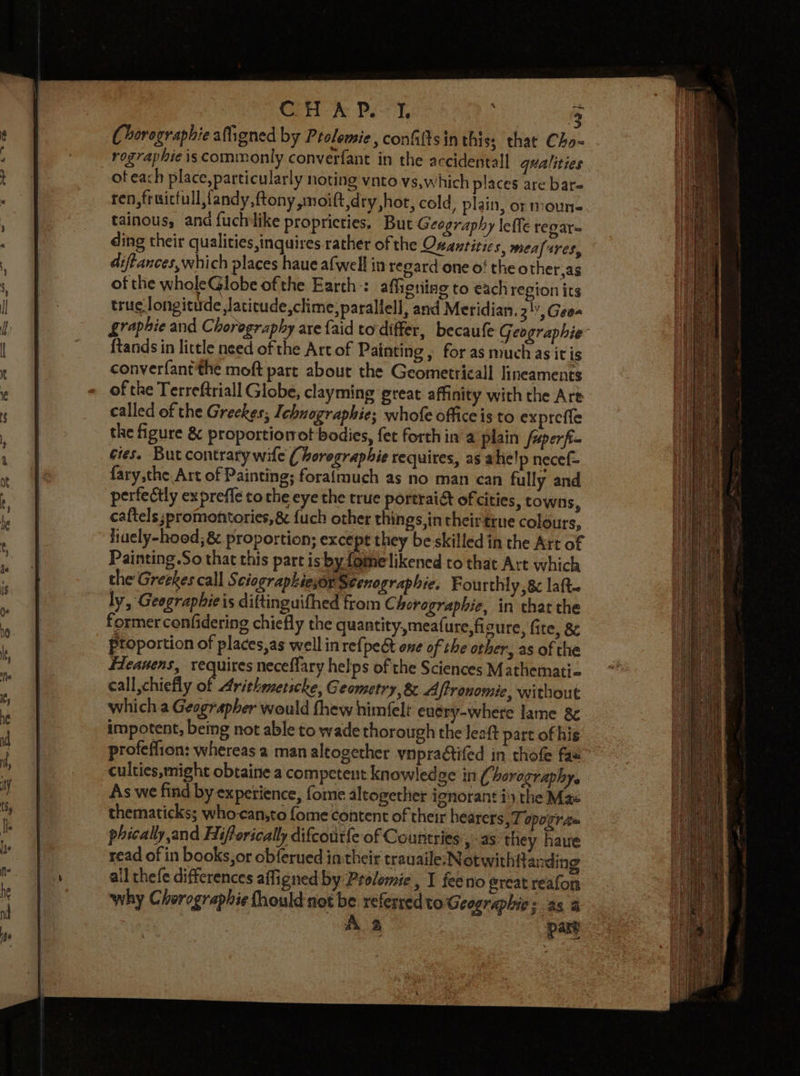 CHAP. I. 3
Chorographie aſſigned by Ptolomie, conſiſts in this; that Cho-
rographie is commonly converſant in the accidentall qualities
of each place, particularly noting vnto vs, which places are bar-
ren, fruitfull, ſandy, ſtony, moiſt, dry, hot, cold, plain, or moun-
tainous, and ſuch like proprieties. But Geography leſſe regar-
ding their qualities, inquires rather of the Quantities, meaſures,
diſtances, which places haue aſwell in regard one of the other, as
of the whole Globe of the Earth: aſſigning to each region its
true longitude, latitude, clime, parallell, and Meridian. 3ly, Geo-
graphie and Chorography are ſaid to differ, becauſe Geographie
ſtands in little need of the Art of Painting, for as much as it is
converſant the moſt part about the Geometricall lineaments
of the Terreſtriall Globe, clayming great affinity with the Art
called of the Greekes, Ichnographie; whoſe office is to expreſſe
the figure & proportion of bodies, ſet forth in a plain ſuperfi-
cies. But contrary wiſe Chorographie requires, as a help neceſ-
ſary, the Art of Painting; foraſmuch as no man can fully and
perfectly expreſſe to the eye the true portraict of cities, towns,
caſtels, promontories, & ſuch other things, in their true colours,
liuely-hood, & proportion; except they be skilled in the Art of
Painting. So that this part is by ſome likened to that Art which
the Greekes call Sciographie, or Scenographie. Fourthly, & laſt-
ly, Geographie is diſtinguiſhed from Chorographie, in that the
former conſidering chiefly the quantity, meaſure, figure, ſite, &
proportion of places, as well in reſpect one of the other, as of the
Heauens, requires neceſſary helps of the Sciences Mathemati-
call, chiefly of Arithmeticke, Geometry, & Aſtronomie, without
which a Geographer would ſhew himſelf euery-where lame &
impotent, being not able to wade thorough the leaſt part of his
profeſſion: whereas a man altogether vnpractiſed in thoſe fa-
culties, might obtaine a competent knowledge in Chorography.
As we find by experience, ſome altogether ignorant in the Ma-
thematicks; who can, to ſome content of their hearers, Topogra-
phically, and Hiſtorically diſcourſe of Countries, as they haue
read of in books, or obſerued in their trauaile. Notwithſtanding
all theſe differences aſſigned by Ptolomie, I ſee no great reaſon
why Chorographie ſhould not be referred to Geographie; as a
A 2 part